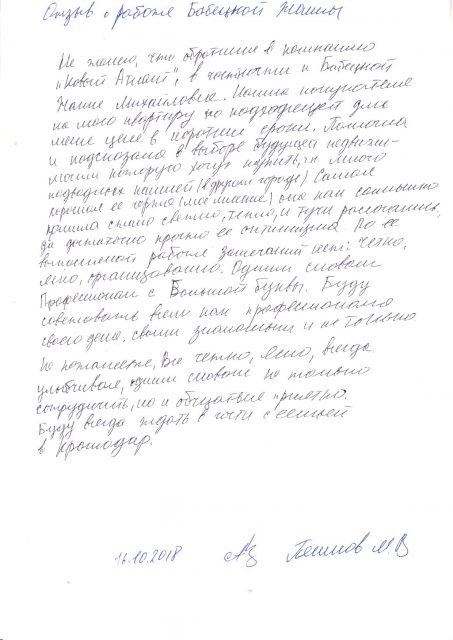 Отзыв о работе Бабецкой Жанны
Не жалею, что обратился в компанию
"Новый Атлант", в частности к Бабецкой
Жанне Михайловне. Нашла покупателя
на мою квартиру по подходящей для
меня цене в короткие сроки. Помогла
и подсказала в выборе будущей недвижи-
мости которую хочу купить, т.к. много
подводных камней (в другом городе) Самая
хорошая ее черта (мое мнение) она как солнышко
пришла стало светло, тепло, и тучи рассеялись,
да достаточно просто ее оптимизма. По ее
выполненной работе замечаний нет: четко,
ясно, организованно. Одним словом
Профессионал с Большой буквы. Буду
советовать всем как профессионала
своего дела, своим знакомым и не только
Не пожалеете, Все четко, ясно, всегда
улыбчивая, одним словом не только
сотрудничать, но и общаться приятно.
Буду всегда ждать в гости с семьей
в Краснодар.
16.10.2018 М В